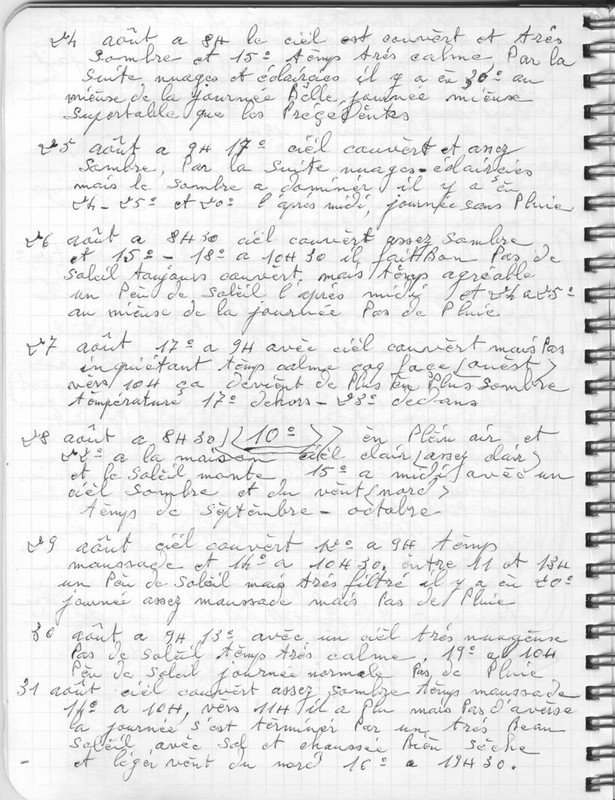 24 août a 8H le ciél est couvért et trés
Sombre et 15º témps trés calme, Par la
Suite nuages et éclaircies il y a éu 30º au
miéuse de la journée Bélle journée miéuse
Suportable que les Précédéntes
25 août a 9H 17º ciél couvért et assez
Sombre, Par la Suite nuages-éclaircies
mais le sombre a dominer il y a éu
24-25º et 20º l'aprés midi, journée sans Pluie
26 août a 8H30 ciél couvért assez Sombre
et 15º-18º a 10H30 il fait Bon Pas de
Soléil toujours couvért, mais témps agréable
un Péu de Soléil l'aprés midi et 24 a 25º
au miéuse de la journée Pas de Pluie
27 août 17º a 9H avéc ciél couvért mais Pas
inquiétant témps calme coq face (ouést)
vérs 10H ça deviént de Plus én Plus Sombre
témpérature 17º dehors-23º dedans
28 août a 8H30 (10º) én Pléin air et
22º a la maison ciél clair (assez clair)
et le Soléil monte 15º a midi avéc un
ciél Sombre et du vént (nord)
témps de séptémbre-octobre
29 août ciél couvért 12º a 9H témps
maussade et 14º a 10H30. éntre 11 et 13H
un Péu de Soléil mais trés filtré il y a éu 20º
journée assez maussade mais Pas de Pluie
30 août, a 9H 13º avéc un ciél trés nuagéuse
Pas de Soléil témps trés calme, 19º a 10H
Péu de Soléil journée normale Pas de Pluie
31 août ciél couvért assez Sombre témps maussade
14º a 10H, vérs 11H il a Plu mais Pas d'avérse
la journée s'est términér Par un trés Beau
Soléil avéc Sol et chaussée Bién Séche
et léger vént du nord 16º a 19H30.